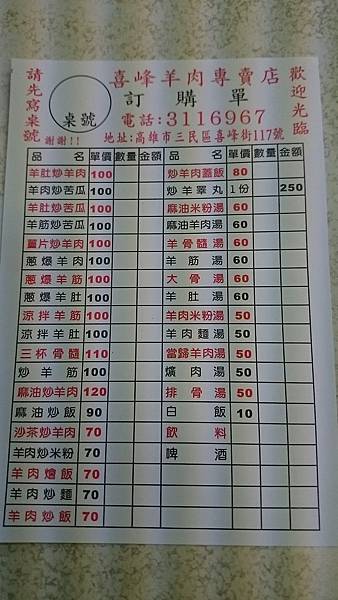 喜峰羊肉專賣店
訂購單
電話:3116967
地址:高雄市三民區喜峰街117號
請先寫桌號 謝謝!!
桌號
歡迎光臨
品名 單價 數量 金額 品名 單價 數量 金額
羊肚炒羊肉 100 炒羊肉蓋飯 80
羊肉炒苦瓜 100 炒羊睪丸 1份 250
羊肚炒苦瓜 100 麻油米粉湯 60
羊筋炒苦瓜 100 麻油羊肉湯 60
薑片炒羊肉 100 羊骨髓湯 60
蔥爆羊肉 100 羊筋湯 60
蔥爆羊筋 100 大骨湯 60
蔥爆羊肚 100 羊肚湯 60
涼拌羊筋 100 羊肉米粉湯 50
涼拌羊肚 100 羊肉麵湯 50
三杯骨髓 110 當歸羊肉湯 50
炒羊筋 100 爌肉湯 50
麻油炒羊肉 120 排骨湯 50
麻油炒飯 90 白飯 10
沙茶炒羊肉 70 飲料
羊肉炒米粉 70 啤酒
羊肉燴飯 70
羊肉炒麵 70
羊肉炒飯 70